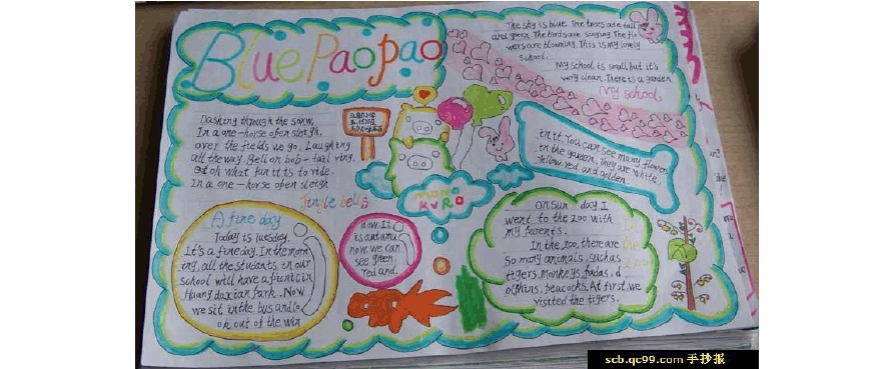 Blue Paopao
The sky is blue. The trees are tall
and green. The birds are singing. The flo
wers are blooming. This is my lovely
school.
My school is small but it's
very clean. There is a garden
My school
in it. You can see many flowers
in the garden. They are white,
yellow red and golden.
Dashing through the snow,
In a one-horse open sleigh,
over the fields we go. Laughing
all the way. Bell on bob-tail ring.
oh what fun it is to ride.
In a one-horse open sleigh
Jingle bells
momo
KYRO
A fine day
Today is Tuesday.
It's a fine day. In the morn
ing, all the students in our
school will have a picnic in
Huang daxian Park. Now
we sit in the bus and lo
ok out of the win
dow. It
is autumn
now we can
see green,
red and
On Sun-day I
went to the zoo with
my parents.
In the zoo, there are
so many animals, such as
tigers, monkeys, pandas, d
olphins, peacocks. At first we
visited the tigers.
scb.qc99.com 手抄报